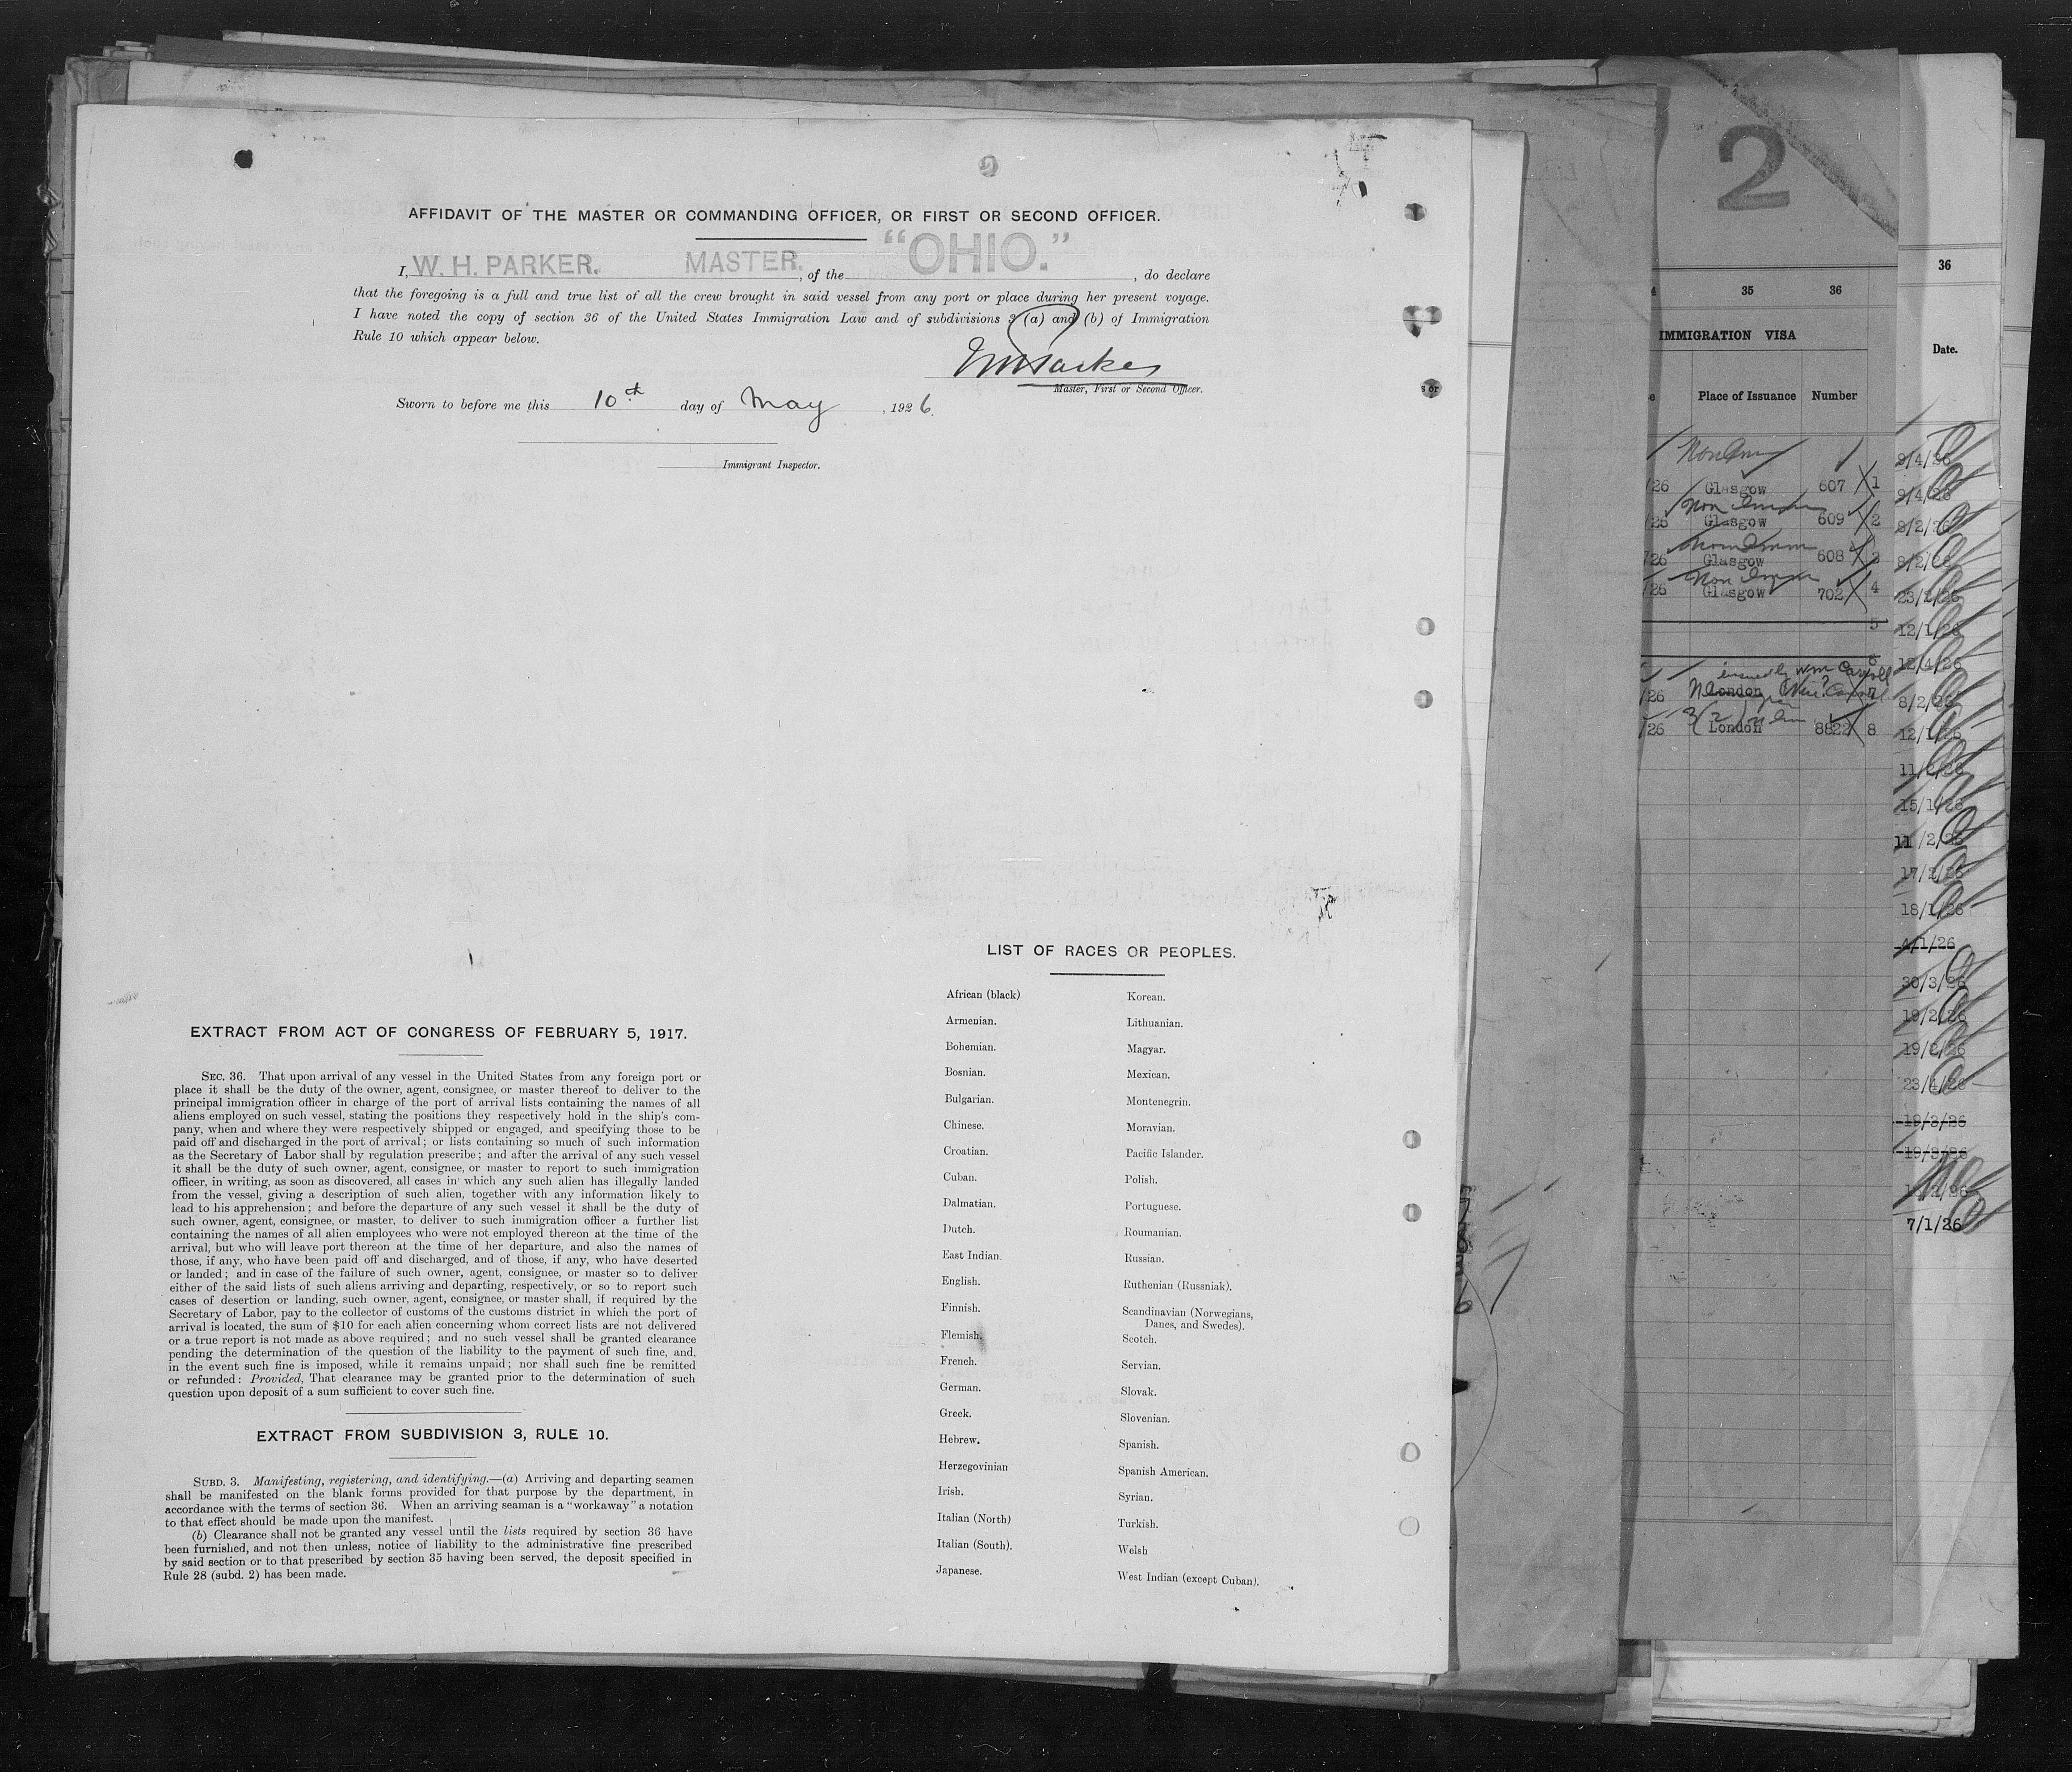 AFFIDAVIT OF THE MASTER OR COMMANDING OFFICER, OR FIRST OR SECOND OFFICER.
I, W. H. PARKER. MASTER. , of the "OHIO." , do declare
that the foregoing is a full and true list of all the crew brought in said vessel from any port or place during her present voyage.
I have noted the copy of section 36 of the United States Immigration Law and of subdivisions 3 (a) and (b) of Immigration
Rule 10 which appear below.
Master, First or Second Officer.
Sworn to before me this 10th day of May , 1926.
Immigrant Inspector.
EXTRACT FROM ACT OF CONGRESS OF FEBRUARY 5, 1917.
SEC. 36. That upon arrival of any vessel in the United States from any foreign port or
place it shall be the duty of the owner, agent, consignee, or master thereof to deliver to the
principal immigration officer in charge of the port of arrival lists containing the names of all
aliens employed on such vessel, stating the positions they respectively hold in the ship's com-
pany, when and where they were respectively shipped or engaged, and specifying those to be
paid off and discharged in the port of arrival; or lists containing so much of such information
as the Secretary of Labor shall by regulation prescribe; and after the arrival of any such vessel
it shall be the duty of such owner, agent, consignee, or master to report to such immigration
officer, in writing, as soon as discovered, all cases in which any such alien has illegally landed
from the vessel, giving a description of such alien, together with any information likely to
lead to his apprehension; and before the departure of any such vessel it shall be the duty of
such owner, agent, consignee, or master, to deliver to such immigration officer a further list
containing the names of all alien employees who were not employed thereon at the time of the
arrival, but who will leave port thereon at the time of her departure, and also the names of
those, if any, who have been paid off and discharged, and of those, if any, who have deserted
or landed; and in case of the failure of such owner, agent, consignee, or master so to deliver
either of the said lists of such aliens arriving and departing, respectively, or so to report such
cases of desertion or landing, such owner, agent, consignee, or master shall, if required by the
Secretary of Labor, pay to the collector of customs of the customs district in which the port of
arrival is located, the sum of $10 for each alien concerning whom correct lists are not delivered
or a true report is not made as above required; and no such vessel shall be granted clearance
pending the determination of the question of the liability to the payment of such fine, and,
in the event such fine is imposed, while it remains unpaid; nor shall such fine be remitted
or refunded: Provided, That clearance may be granted prior to the determination of such
question upon deposit of a sum sufficient to cover such fine.
EXTRACT FROM SUBDIVISION 3, RULE 10.
SUBD. 3. Manifesting, registering, and identifying.—(a) Arriving and departing seamen
shall be manifested on the blank forms provided for that purpose by the department, in
accordance with the terms of section 36. When an arriving seaman is a "workaway" a notation
to that effect should be made upon the manifest.
(b) Clearance shall not be granted any vessel until the lists required by section 36 have
been furnished, and not then unless, notice of liability to the administrative fine prescribed
by said section or to that prescribed by section 35 having been served, the deposit specified in
Rule 28 (subd. 2) has been made.
LIST OF RACES OR PEOPLES.
African (black)
Armenian.
Bohemian.
Bosnian.
Bulgarian.
Chinese.
Croatian.
Cuban.
Dalmatian.
Dutch.
East Indian.
English.
Finnish.
Flemish.
French.
German.
Greek.
Hebrew.
Herzegovinian
Irish.
Italian (North)
Italian (South).
Japanese.
Korean.
Lithuanian.
Magyar.
Mexican.
Montenegrin.
Moravian.
Pacific Islander.
Polish.
Portuguese.
Roumanian.
Russian.
Ruthenian (Russniak).
Scandinavian (Norwegians,
Danes, and Swedes).
Scotch.
Servian.
Slovak.
Slovenian.
Spanish.
Spanish American.
Syrian.
Turkish.
Welsh
West Indian (except Cuban).
2
35 36
IMMIGRATION VISA
Place of Issuance Number
/26 Glasgow 607 1
/26 Glasgow 609 2
/26 Glasgow 608 3
/26 Glasgow 702 4
5
6
/26 London 7
/26 London 8822 8
36
Date.
9/4/26
9/4/26
8/2/26
8/2/26
23/2/26
12/1/26
12/4/26
8/2/26
12/1/26
11/2/26
15/1/26
11/2/26
17/2/26
18/1/26
4/1/26
30/3/26
19/2/26
19/2/26
23/4/26
19/3/26
19/3/26
7/1/26